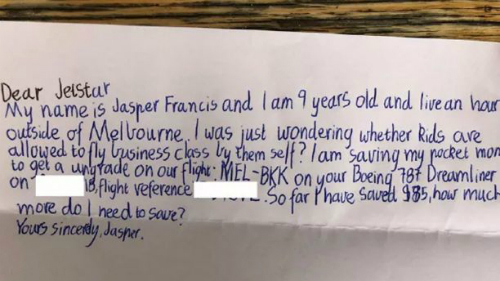 Dear Jetstar
My name is Jasper Francis and I am 9 years old and live an hour
outside of Melbourne. I was just wondering whether kids are
allowed to fly business class by them self? I am saving my pocket mon
to get a upgrade on our flight: MEL-BKK on your Boeing 787 Dreamliner
on 18, flight reference . So far I have saved $85, how much
more do I need to save?
Yours sincerely, Jasper.